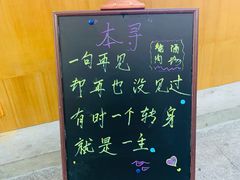 本寻
一句再见
却再也没见过
有时一个转身
就是一生